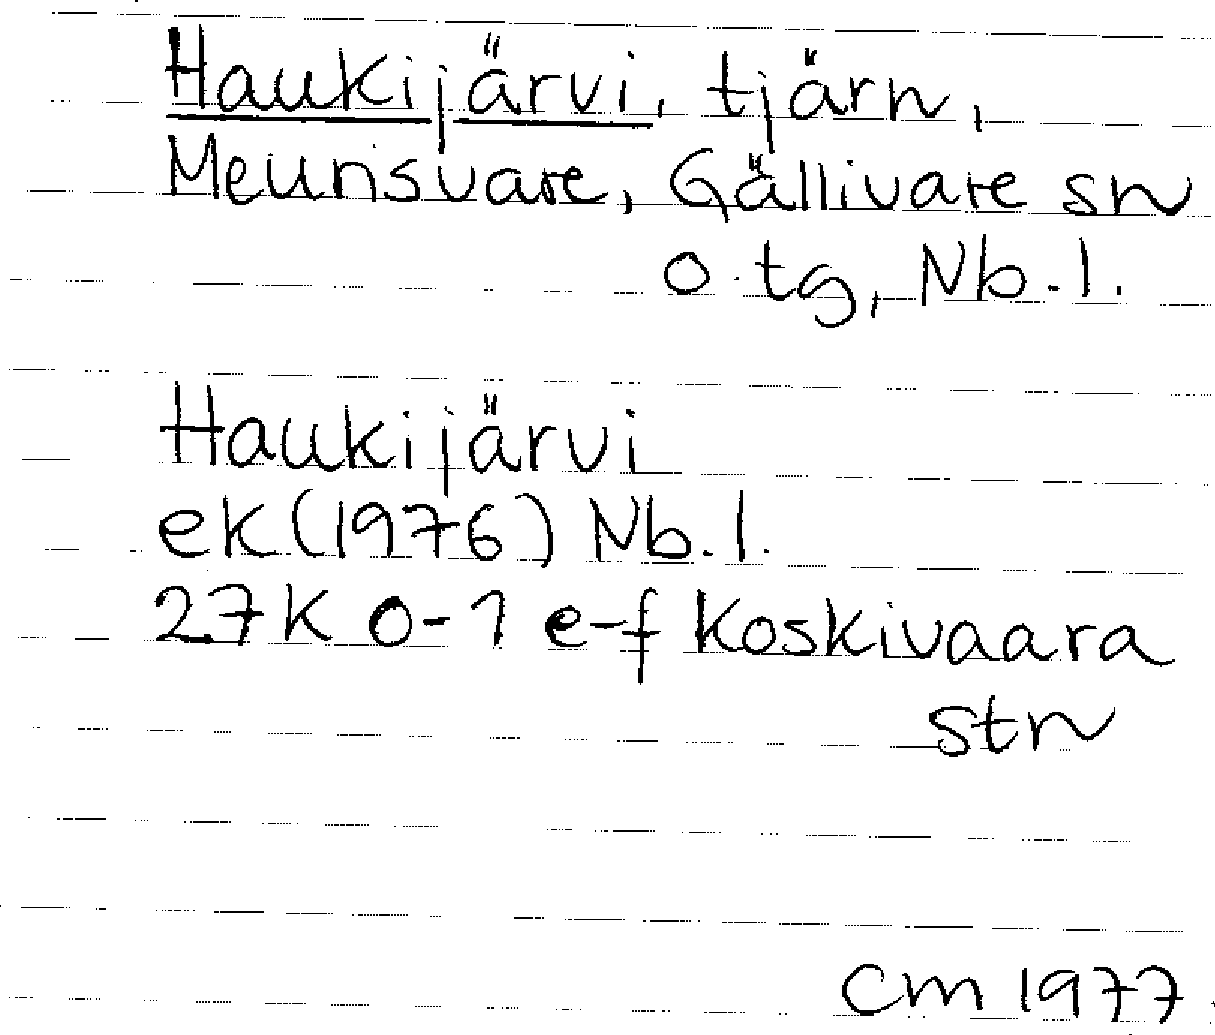 Haukijärvi, tjärn,
Meunsvare, Gällivare sn
o. tg, Nb. l.
Haukijärvi
ek (1976) Nb. l.
27K 0-1 e-f Koskivaara
stn
CM 1977.